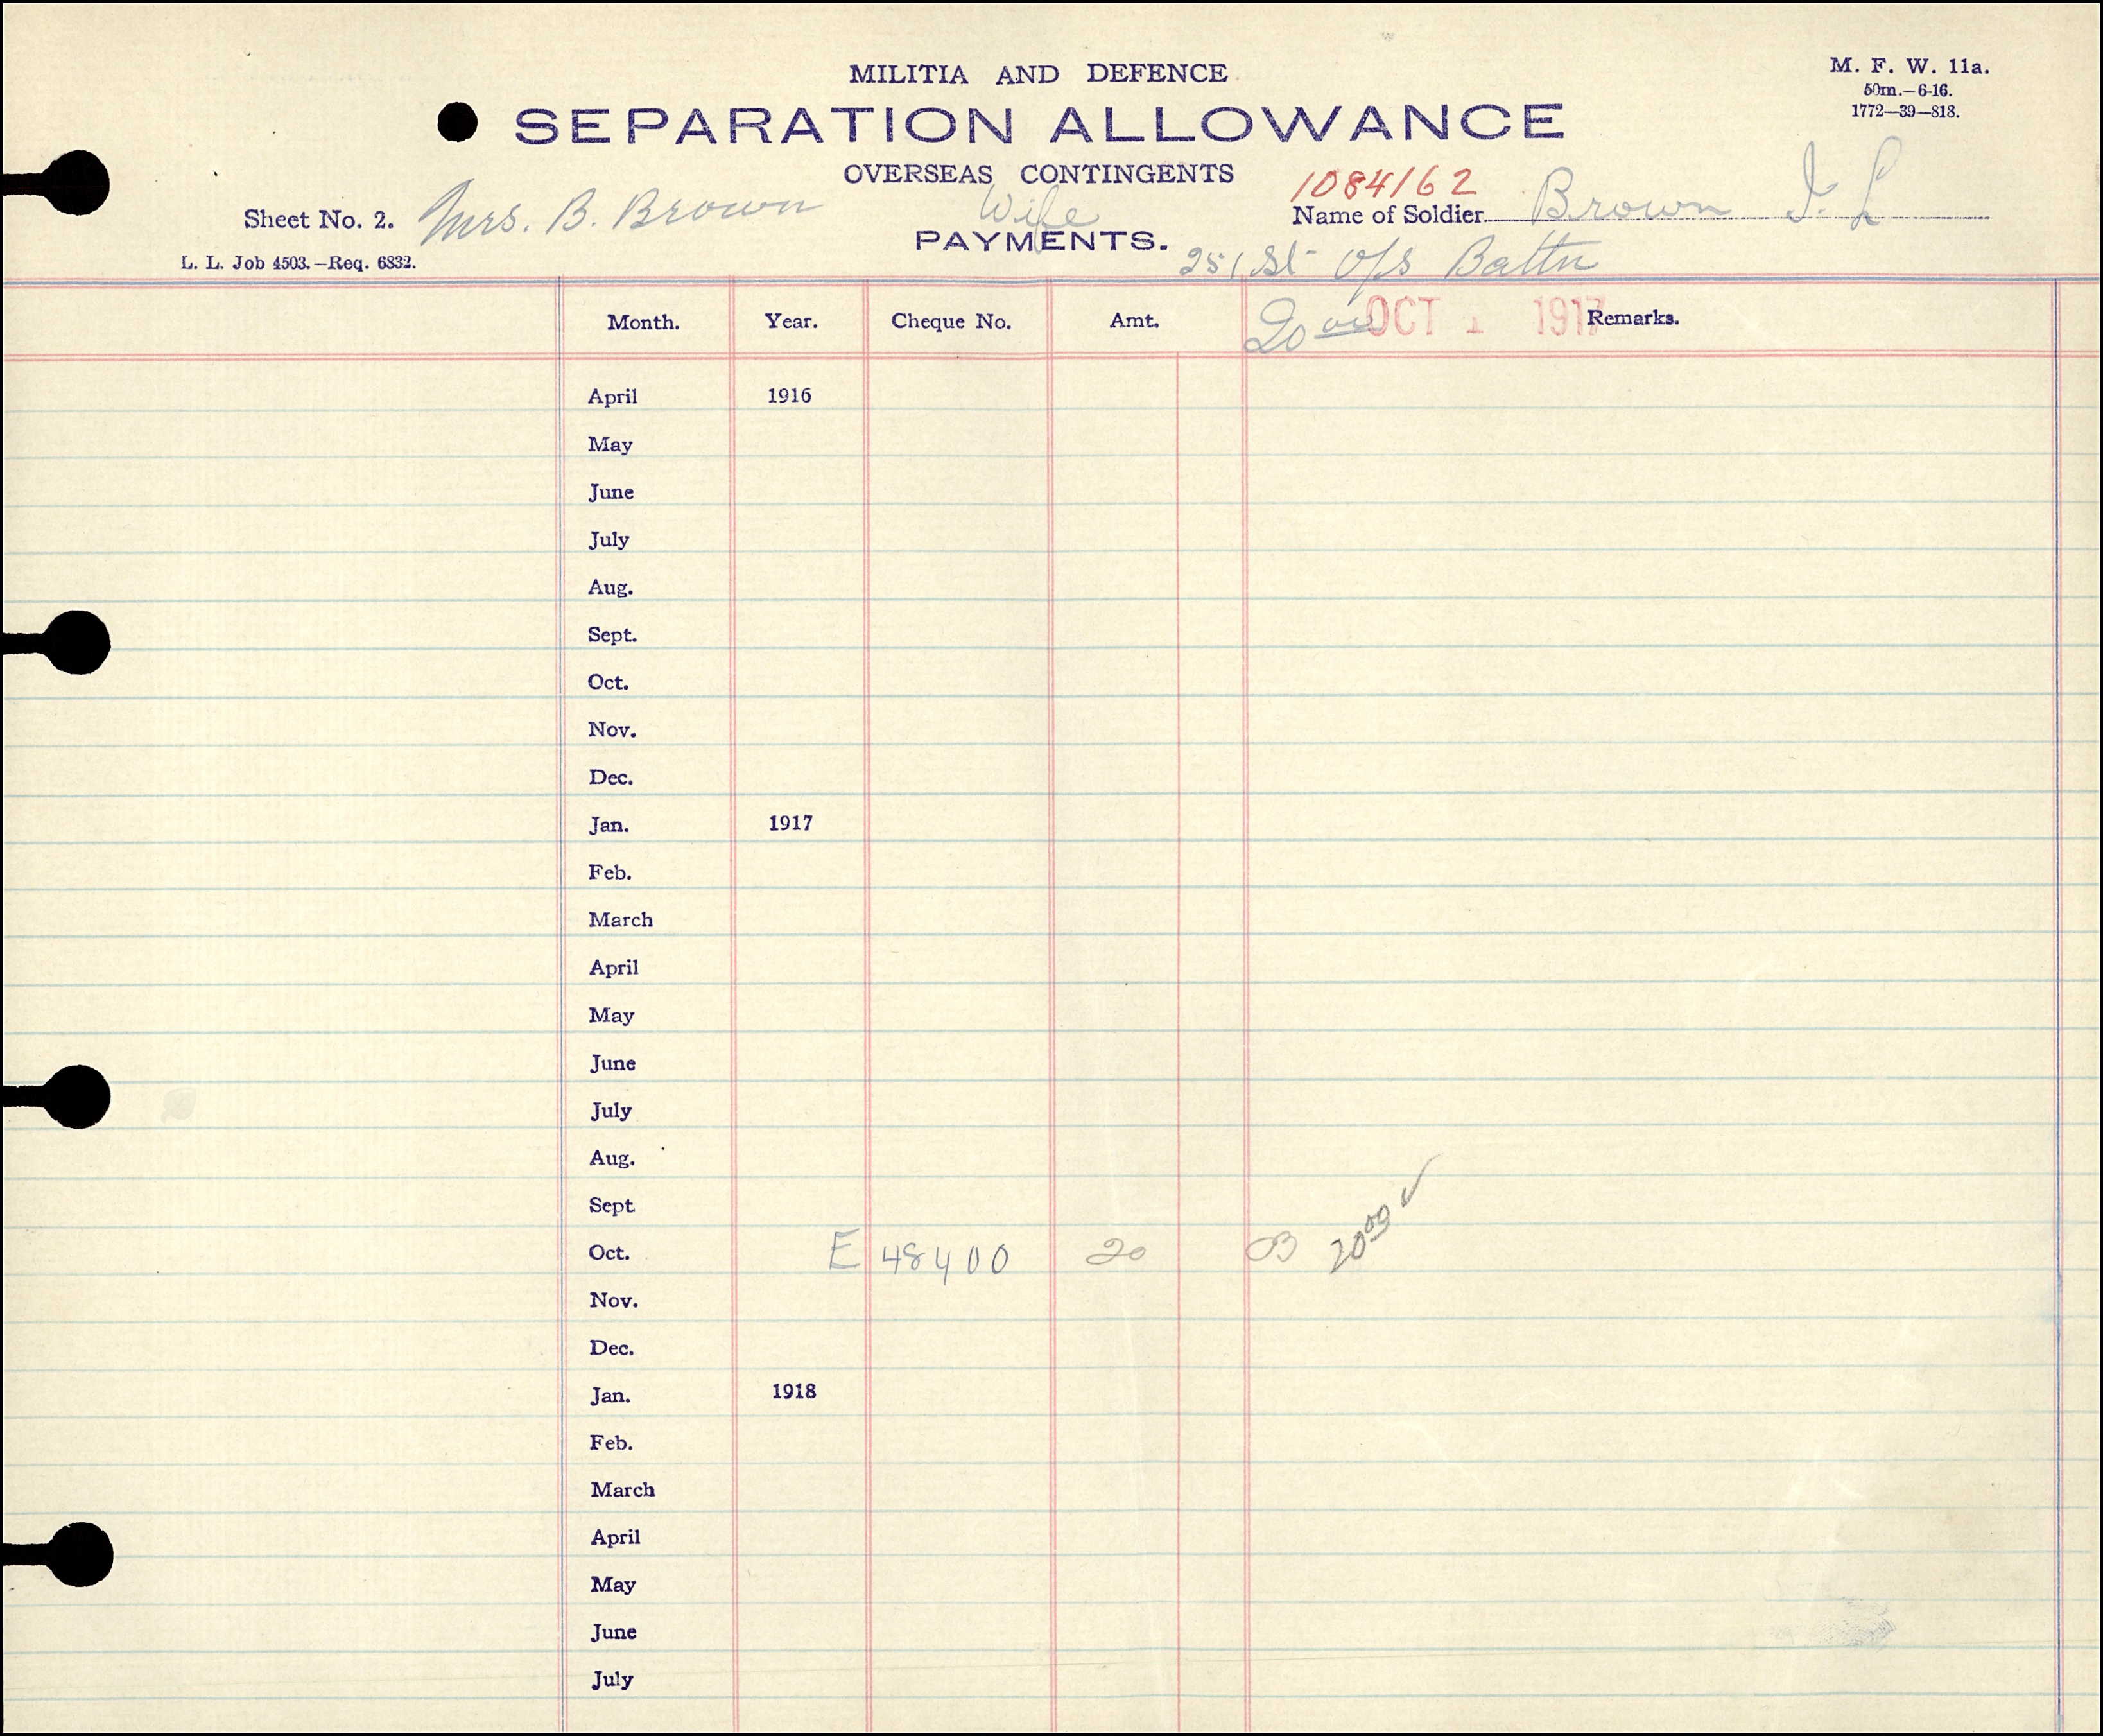 MILITIA AND DEFENCE
M. F. W. 11a.
50m.—6-16.
1772—39—818.
SEPARATION ALLOWANCE
OVERSEAS CONTINGENTS
1084162
Sheet No. 2. Mrs. B. Brown
Wife
Name of Soldier Brown I. L
PAYMENTS.
251st O/s Battn
L. L. Job 4503.—Req. 6832.
Month. Year. Cheque No. Amt. 20 00 OCT 1 1917 Remarks.
April 1916
May
June
July
Aug.
Sept.
Oct.
Nov.
Dec.
Jan. 1917
Feb.
March
April
May
June
July
Aug.
Sept
Oct. E 48400 20 20 00 ✓
Nov.
Dec.
Jan. 1918
Feb.
March
April
May
June
July